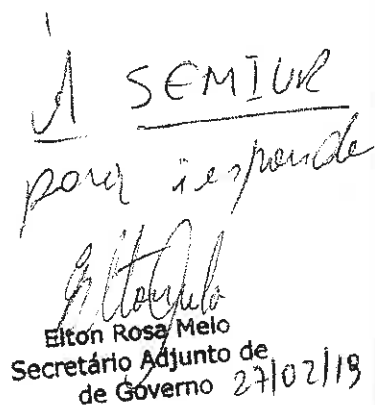 À SEMIUR
para responder
Elton Rosa Melo
Secretário Adjunto de
de Governo 27/02/19